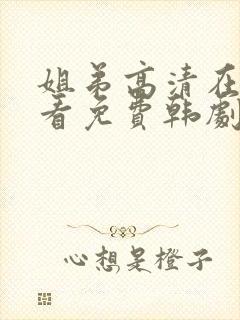 姐弟高清在
看免费韩剧
心想是橙子